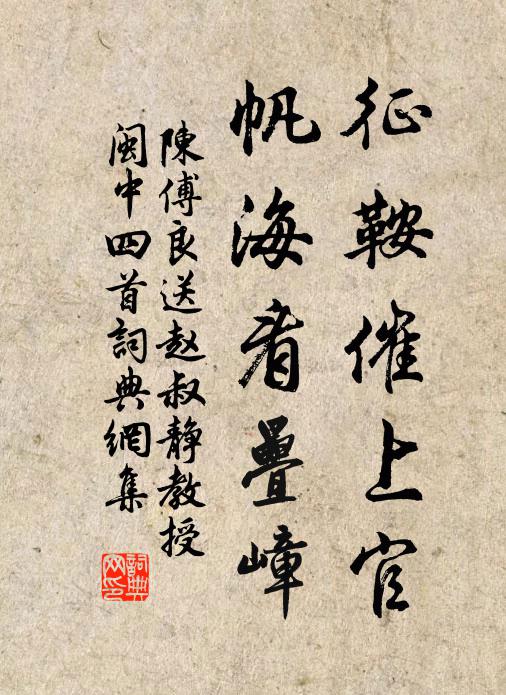 征鞍催上官
帆海看疊嶂
陳傅良送赵叔静教授
闽中四首詞典網集
詞典網印